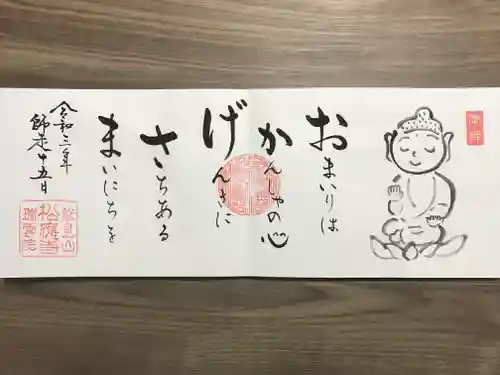 おまいりは
かんしゃの心
げんきに
さちある
まいにちを
令和三年
師走十五日
松應寺